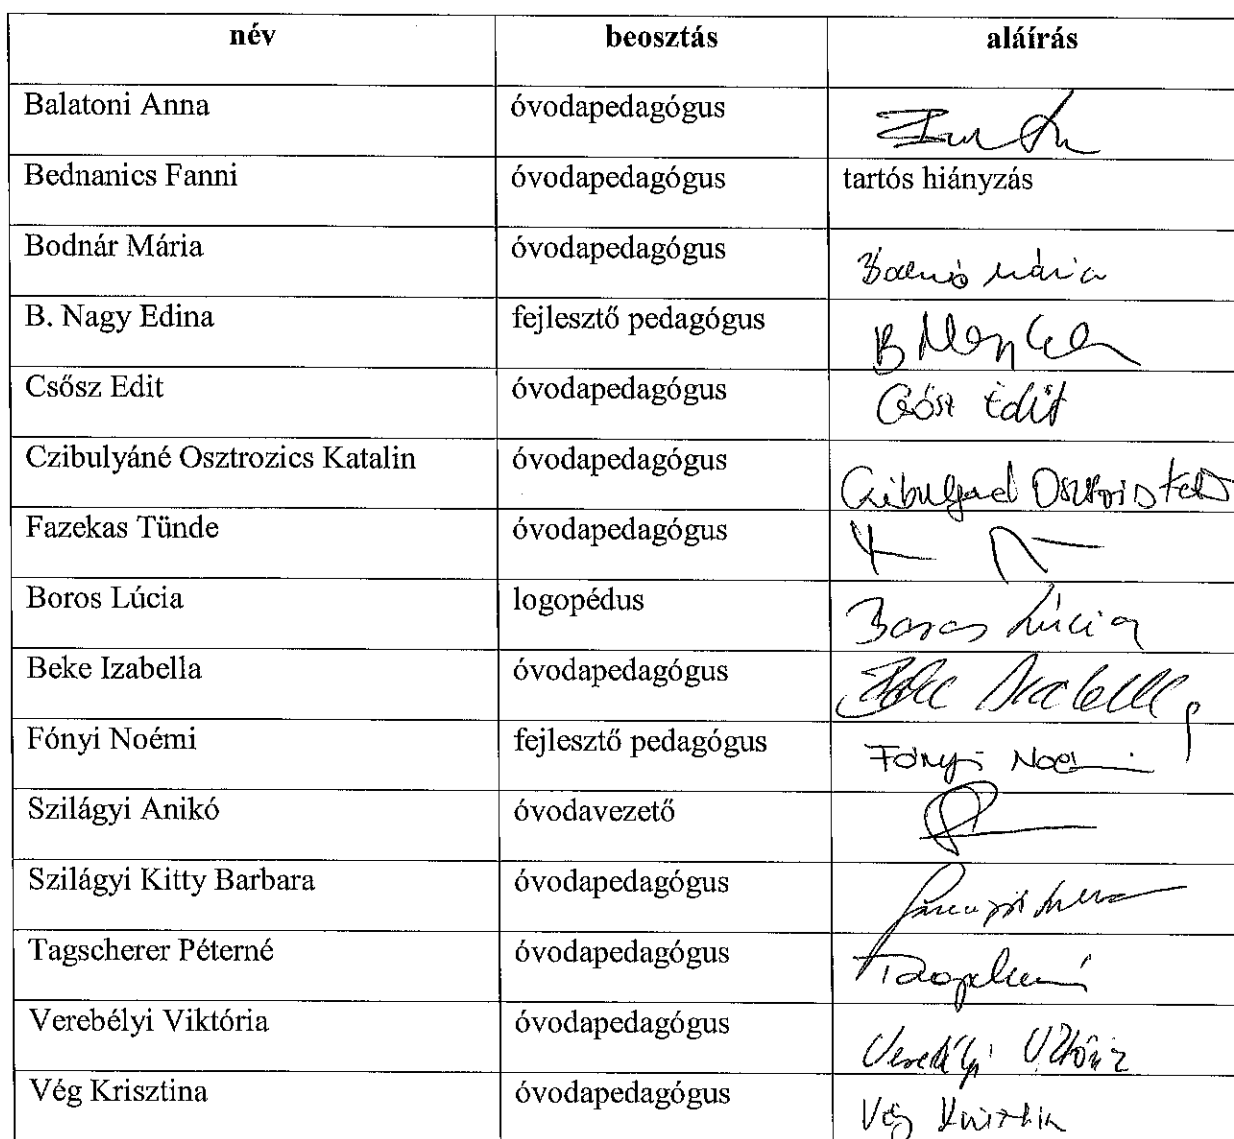 név beosztás aláírás
Balatoni Anna óvodapedagógus
Bednanics Fanni óvodapedagógus tartós hiányzás
Bodnár Mária óvodapedagógus Bodnár Mária
B. Nagy Edina fejlesztő pedagógus B Nagy
Csősz Edit óvodapedagógus Csősz Edit
Czibulyáné Osztrozics Katalin óvodapedagógus
Fazekas Tünde óvodapedagógus
Boros Lúcia logopédus Boros Lúcia
Beke Izabella óvodapedagógus Beke Izabella
Fónyi Noémi fejlesztő pedagógus Fónyi Noémi
Szilágyi Anikó óvodavezető
Szilágyi Kitty Barbara óvodapedagógus
Tagscherer Péterné óvodapedagógus
Verebélyi Viktória óvodapedagógus Verebélyi Viktória
Vég Krisztina óvodapedagógus Vég Krisztina